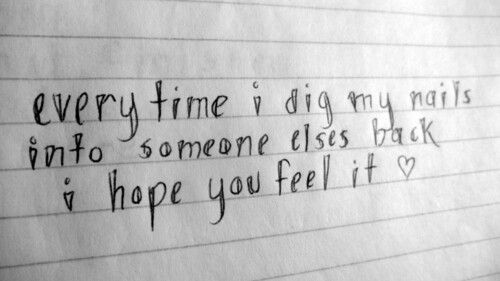 every time i dig my nails
into someone elses back
i hope you feel it ♡